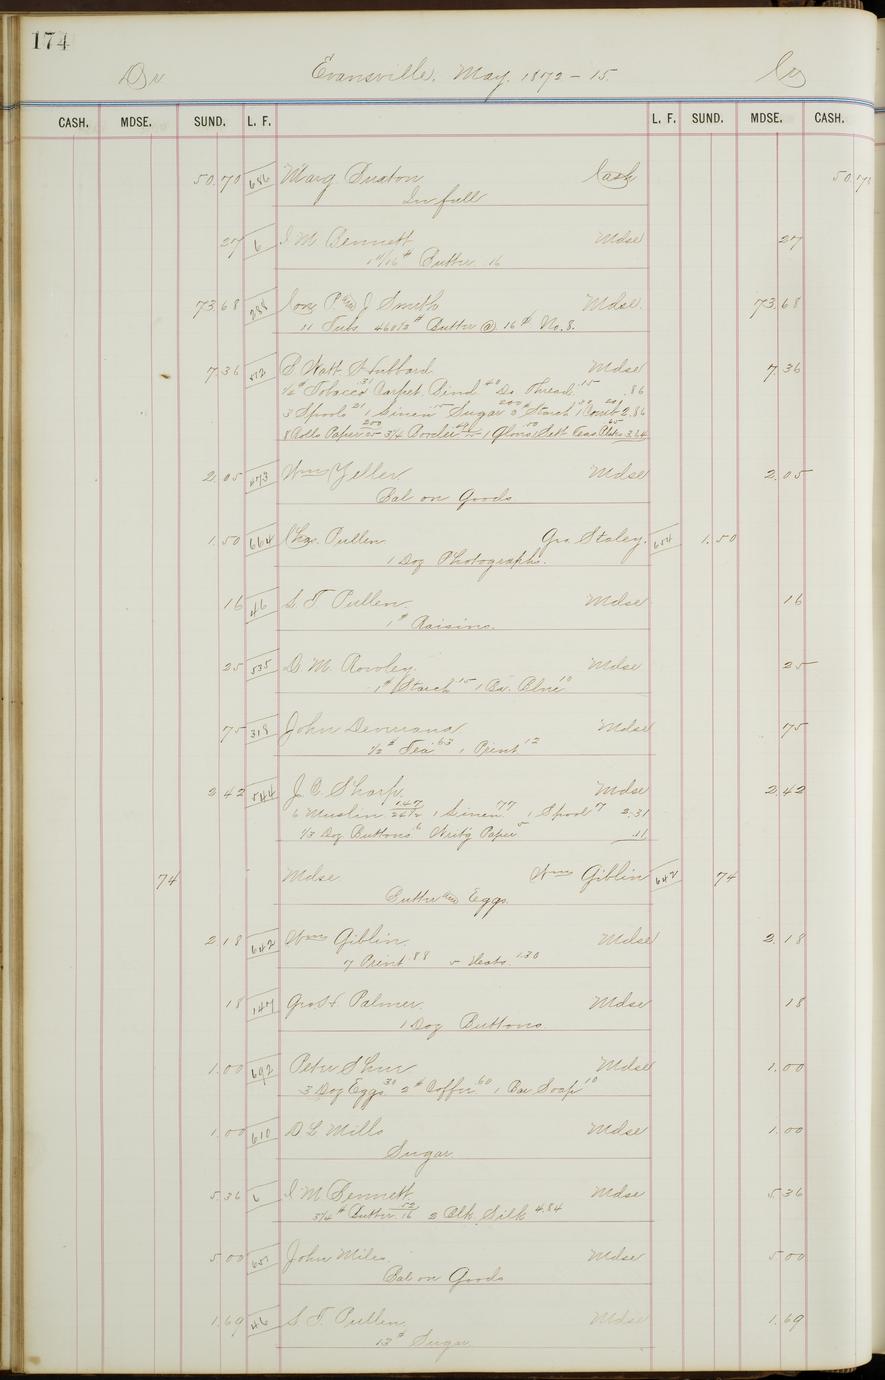 174
Dr Evansville. May. 1872 - 15 Cr
CASH. MDSE. SUND. L. F. L. F. SUND. MDSE. CASH.
50.70 686 Marg Cash 50.70
In full
27 6 I M Bennett Mdse 27
1 11/16 # Butter 16
73.68 288 P. and J Smith Mdse. 73.68
11 Tubs 460 1/2 # Butter @ 16 ¢ No. 8.
7.36 Hubbard Mdse 7 36
1/2 # Tobacco Carpet Bind 40 Do Thread 15 .86
3 Spools 21 1 Linen 15 Sugar 200 3 # Starch 1 Comb 2.86
8 Rolls Paper 200/25 3 3/4 Border 1 Gloves 1 Sett Teas Plates 3.64
2.05 473 Wm Zeller Mdse 2.05
Bal on Goods
1.50 664 Chas. Pullen Geo Staley. 654 1.50
1 Doz Photographs.
16 46 S. T. Pullen. Mdse 16
1 # Raisins.
25 535 D. M. Rowley. Mdse 25
1 # Starch 15 1 Bx. Blue 10
75 318 John Mdse 75
1/2 # Tea 63 1 Print 12
2 42 544 J. C. Sharp. Mdse 2.42
6 Muslin 147/24 1/2 1 Linen 77 1 Spool 7 2.31
1/3 Doz Buttons 6 Writ'g Paper 5 .11
74 Mdse Wm Giblin 642 74
Butter and Eggs.
2 18 642 Wm Giblin. Mdse 2.18
7 Print .88 5 1.30
18 147 Geo H. Palmer. Mdse 18
1 Doz Buttons.
1.00 692 Peter Mdse 1.00
3 Doz Eggs 30 2 # Coffee 60 1 Bar Soap 10
1.00 610 D L Mills Mdse 1.00
Sugar.
5.36 6 I M Bennett. Mdse 5.36
3 1/4 # Butter 52/16 2 Blk Silk 4.84
5 00 John Miles. Mdse 5 00
Bal on Goods
1.69 46 S. T. Pullen. Mdse 1.69
13 # Sugar.